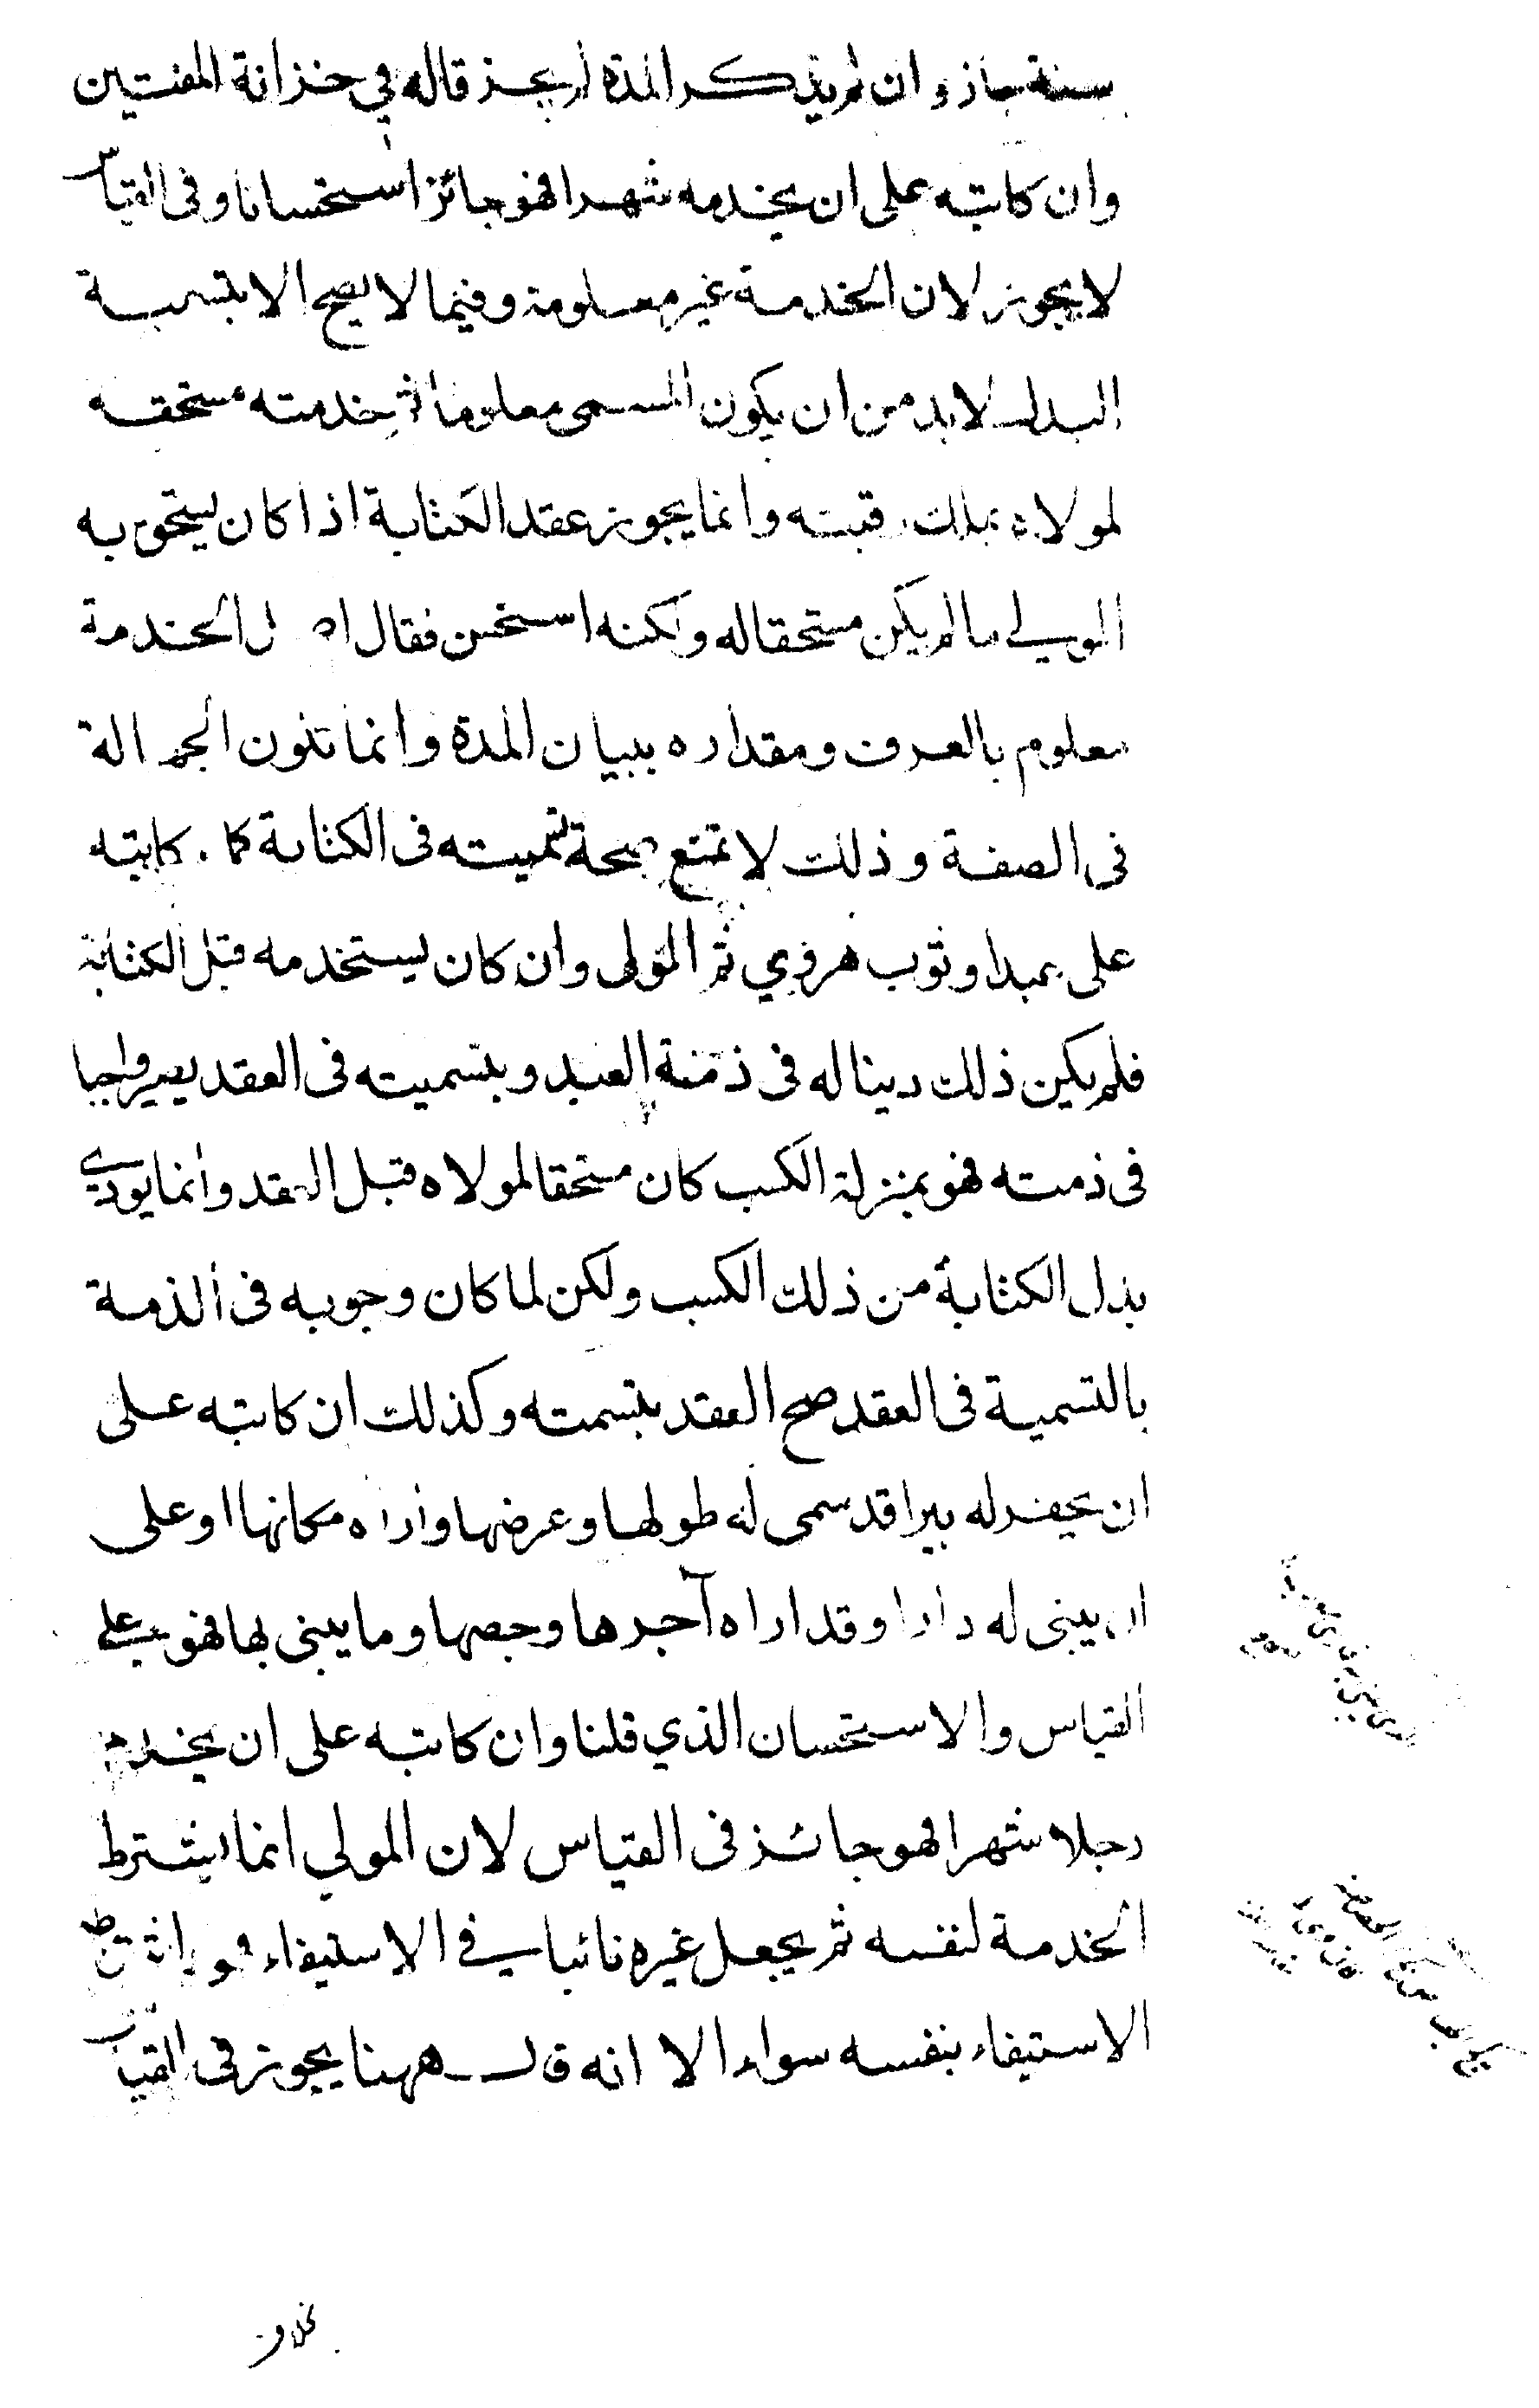 سنة جاز وان لم يذكر المدة لم يجز قاله في خزانة المفتيين
وان كاتبه على ان يخدمه شهرا فهو جائز استحسانا وفى القياس
لا يجوز لان الخدمة غير معلومة وفيما لا يصح الا بتسمية
البدل لا بد من ان يكون المسمى معلوما ثم خدمته مستحقه
لمولاه بملك رقبته وانما يجوز عقد الكتابة اذا كان يستحق به
المولى ما لم يكن مستحقا له ولكنه استحسن فقال اصل الخدمة
معلوم بالعرف ومقداره ببيان المدة وانما تكون الجهالة
فى الصفة وذلك لا تمنع صحة تسميته فى الكتابة كما كاتبه
على عبد او ثوب هروي ثم المولى وان كان يستخدمه قبل الكتابة
فلم يكن ذلك دينا له فى ذمة العبد وبتسميته فى العقد يصير واجبا
فى ذمته فهو بمنزلة الكسب كان مستحقا لمولاه قبل العقد وانما يودي
بدل الكتابة من ذلك الكسب ولكن لما كان وجوبه فى الذمة
بالتسمية فى العقد صح العقد بتسمته وكذلك ان كاتبه على
ان يحفر له بيرا قد سمى له طولها وعرضها واراه مكانها او على
ان يبنى له دارا وقد اراه آجرها وجصها وما يبنى بها فهو على
القياس والاستحسان الذي قلنا وان كاتبه على ان يخدم
رجلا شهرا فهو جائز فى القياس لان المولي انما يشترط
الخدمة لنفسه ثم يجعل غيره نائبا في الاستيفاء فهو
الاستيفاء بنفسه سواء الا انه قال ههنا يجوز فى القياس